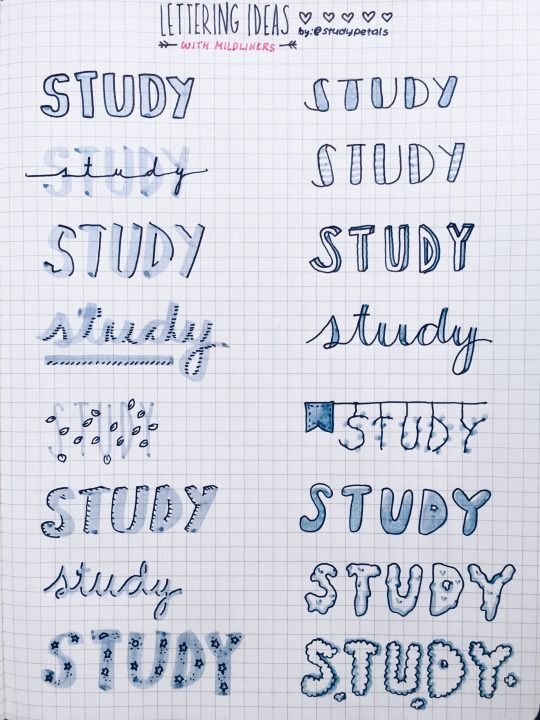 LETTERING IDEAS
by: @studypetals
WITH MILDLINERS
STUDY STUDY
study STUDY
STUDY STUDY
study study
STUDY STUDY
STUDY STUDY
study STUDY
STUDY STUDY